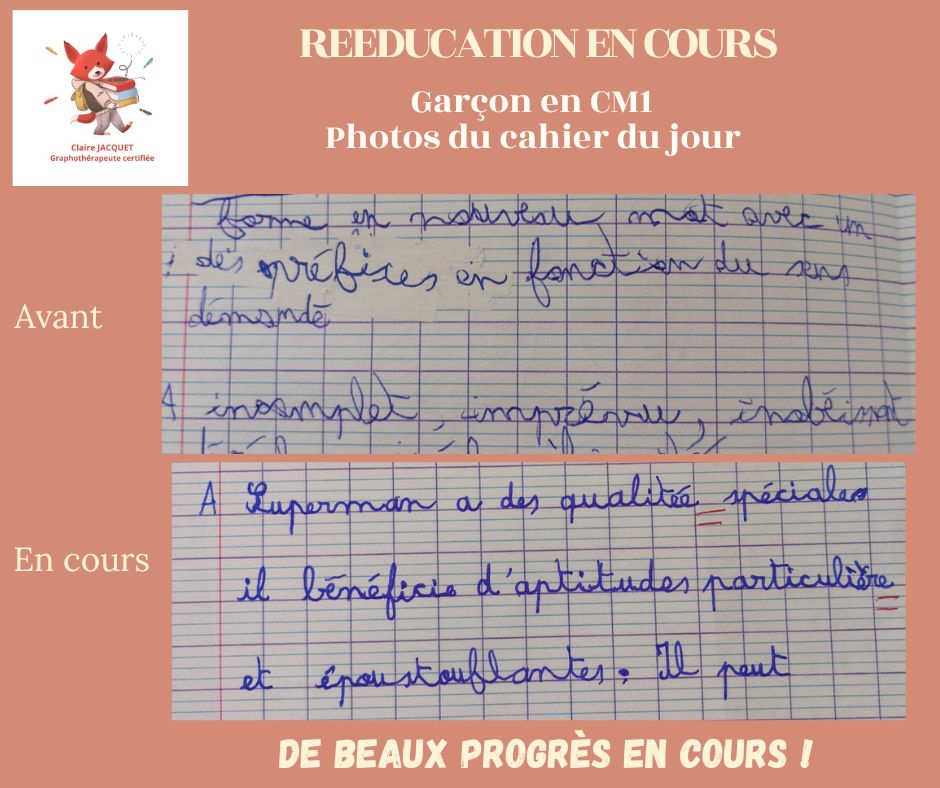 Claire JACQUET
Graphothérapeute certifiée
REEDUCATION EN COURS
Garçon en CM1
Photos du cahier du jour
Avant
forme en nouveau mot avec un
des préfixes en fonction du sens
démandé
A incomplet, imprévu,
En cours
A Superman a des qualitée spéciales
il bénéficie d'aptitudes particulière
et époustouflantes. Il peut
DE BEAUX PROGRÈS EN COURS !